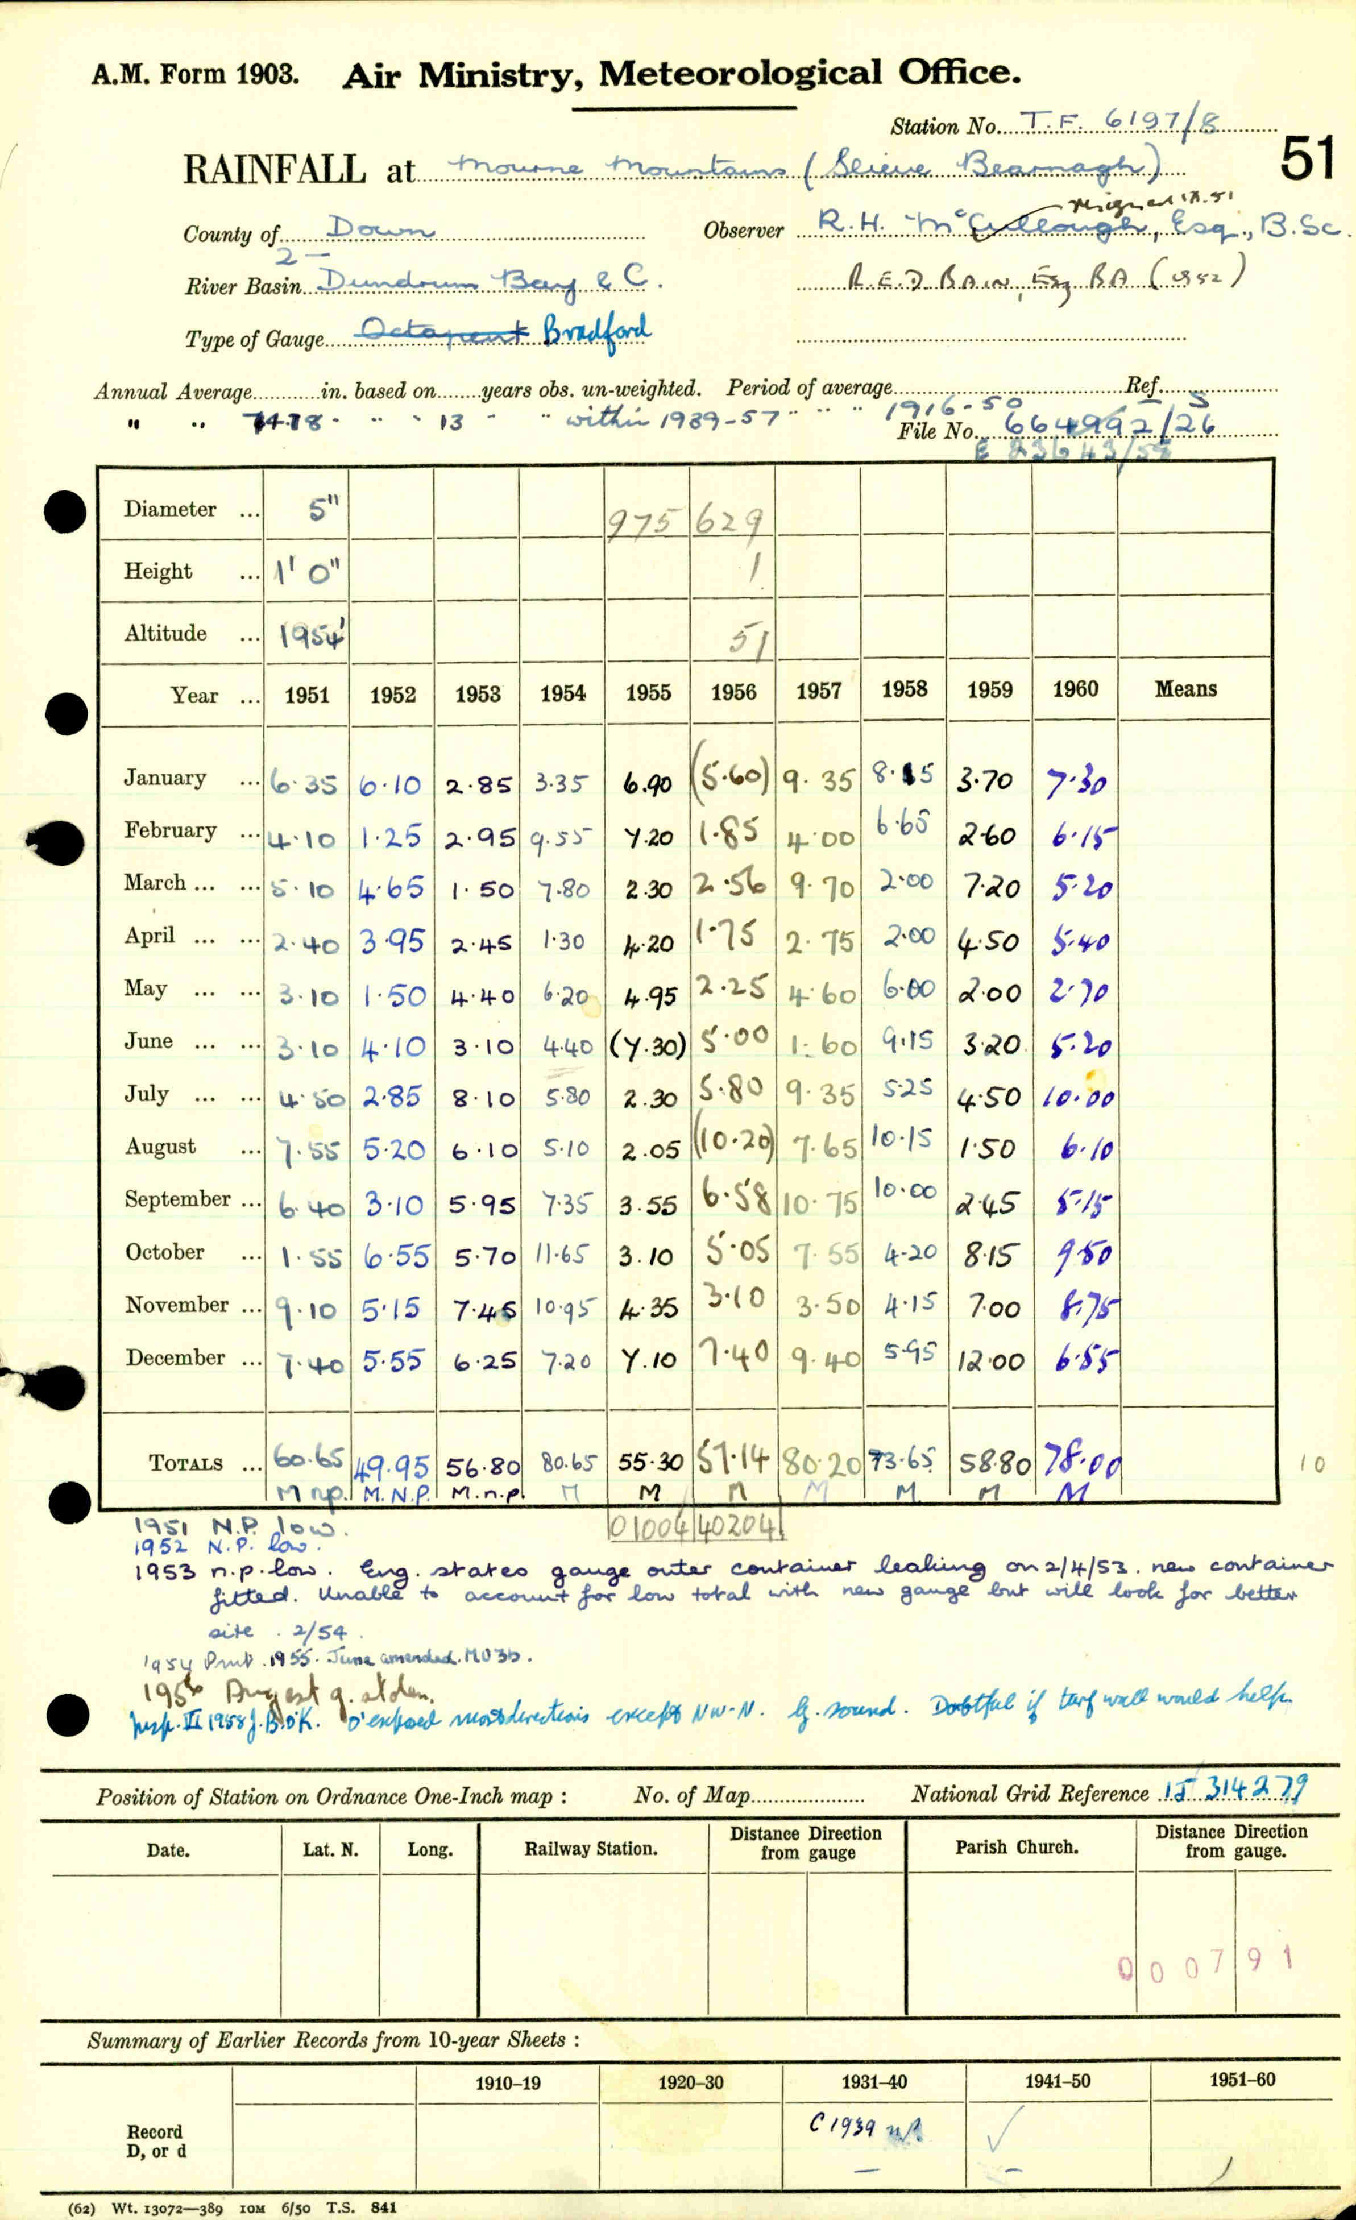 A.M. Form 1903. Air Ministry, Meteorological Office.
Station No. T.F. 6197/8
51
RAINFALL at Mourne Mountains (Slieve Bearnagh)
resigned
County of Down Observer R.H. McCullough, Esq., B.Sc.
2-
River Basin Dundrum Bay & C. R.E.D. BAIN, Esq BA (1952)
Type of Gauge Octapent Bradford
Annual Average in. based on years obs. un-weighted. Period of average Ref.
" " 13 " " within 1939-57 " " " 1916-50
File No. 664992/26
Diameter ... 5" 975 629
Height ... 1' 0" 1
Altitude ... 1954' 51
Year ... 1951 1952 1953 1954 1955 1956 1957 1958 1959 1960 Means
January ... 6.35 6.10 2.85 3.35 6.90 (5.60) 9.35 8.15 3.70 7.30
February ... 4.10 1.25 2.95 9.55 7.20 1.85 4.00 6.65 2.60 6.15
March ... ... 5.10 4.65 1.50 7.80 2.30 2.56 9.70 2.00 7.20 5.20
April ... ... 2.40 3.95 2.45 1.30 4.20 1.75 2.75 2.00 4.50 5.40
May ... ... 3.10 1.50 4.40 6.20 4.95 2.25 4.60 6.00 2.00 2.70
June ... ... 3.10 4.10 3.10 4.40 (7.30) 5.00 1.60 9.15 3.20 5.20
July ... ... 4.50 2.85 8.10 5.80 2.30 5.80 9.35 5.25 4.50 10.00
August ... 7.55 5.20 6.10 5.10 2.05 (10.20) 7.65 10.15 1.50 6.10
September ... 6.40 3.10 5.95 7.35 3.55 6.58 10.75 10.00 2.45 5.15
October ... 1.55 6.55 5.70 11.65 3.10 5.05 7.55 4.20 8.15 9.50
November ... 9.10 5.15 7.45 10.95 4.35 3.10 3.50 4.15 7.00 8.75
December ... 7.40 5.55 6.25 7.20 7.10 7.40 9.40 5.95 12.00 6.55
TOTALS ... 60.65 49.95 56.80 80.65 55.30 57.14 80.20 73.65 58.80 78.00 10
M np. M.N.P. M.n.p. M M M M M M M
1951 N.P. low. 01004 40204
1952 N.P. low.
1953 n.p. low. Eng. states gauge outer container leaking on 2/4/53. new container
fitted. Unable to account for low total with new gauge but will look for better
site . 2/54.
1954 Pmt. 1955. June amended. MO3b.
1956 August g. stolen.
Insp. III 1958 J.B.O'K. O'exposed most directions except NW-N. G. sound. Doubtful if turf wall would help
Position of Station on Ordnance One-Inch map : No. of Map National Grid Reference IJ 314279
Date. Lat. N. Long. Railway Station. Distance Direction from gauge Parish Church. Distance Direction from gauge.
000791
Summary of Earlier Records from 10-year Sheets :
1910–19 1920–30 1931–40 1941–50 1951–60
Record
D, or d
C 1939 ✓
(62) Wt. 13072—389 10M 6/50 T.S. 841